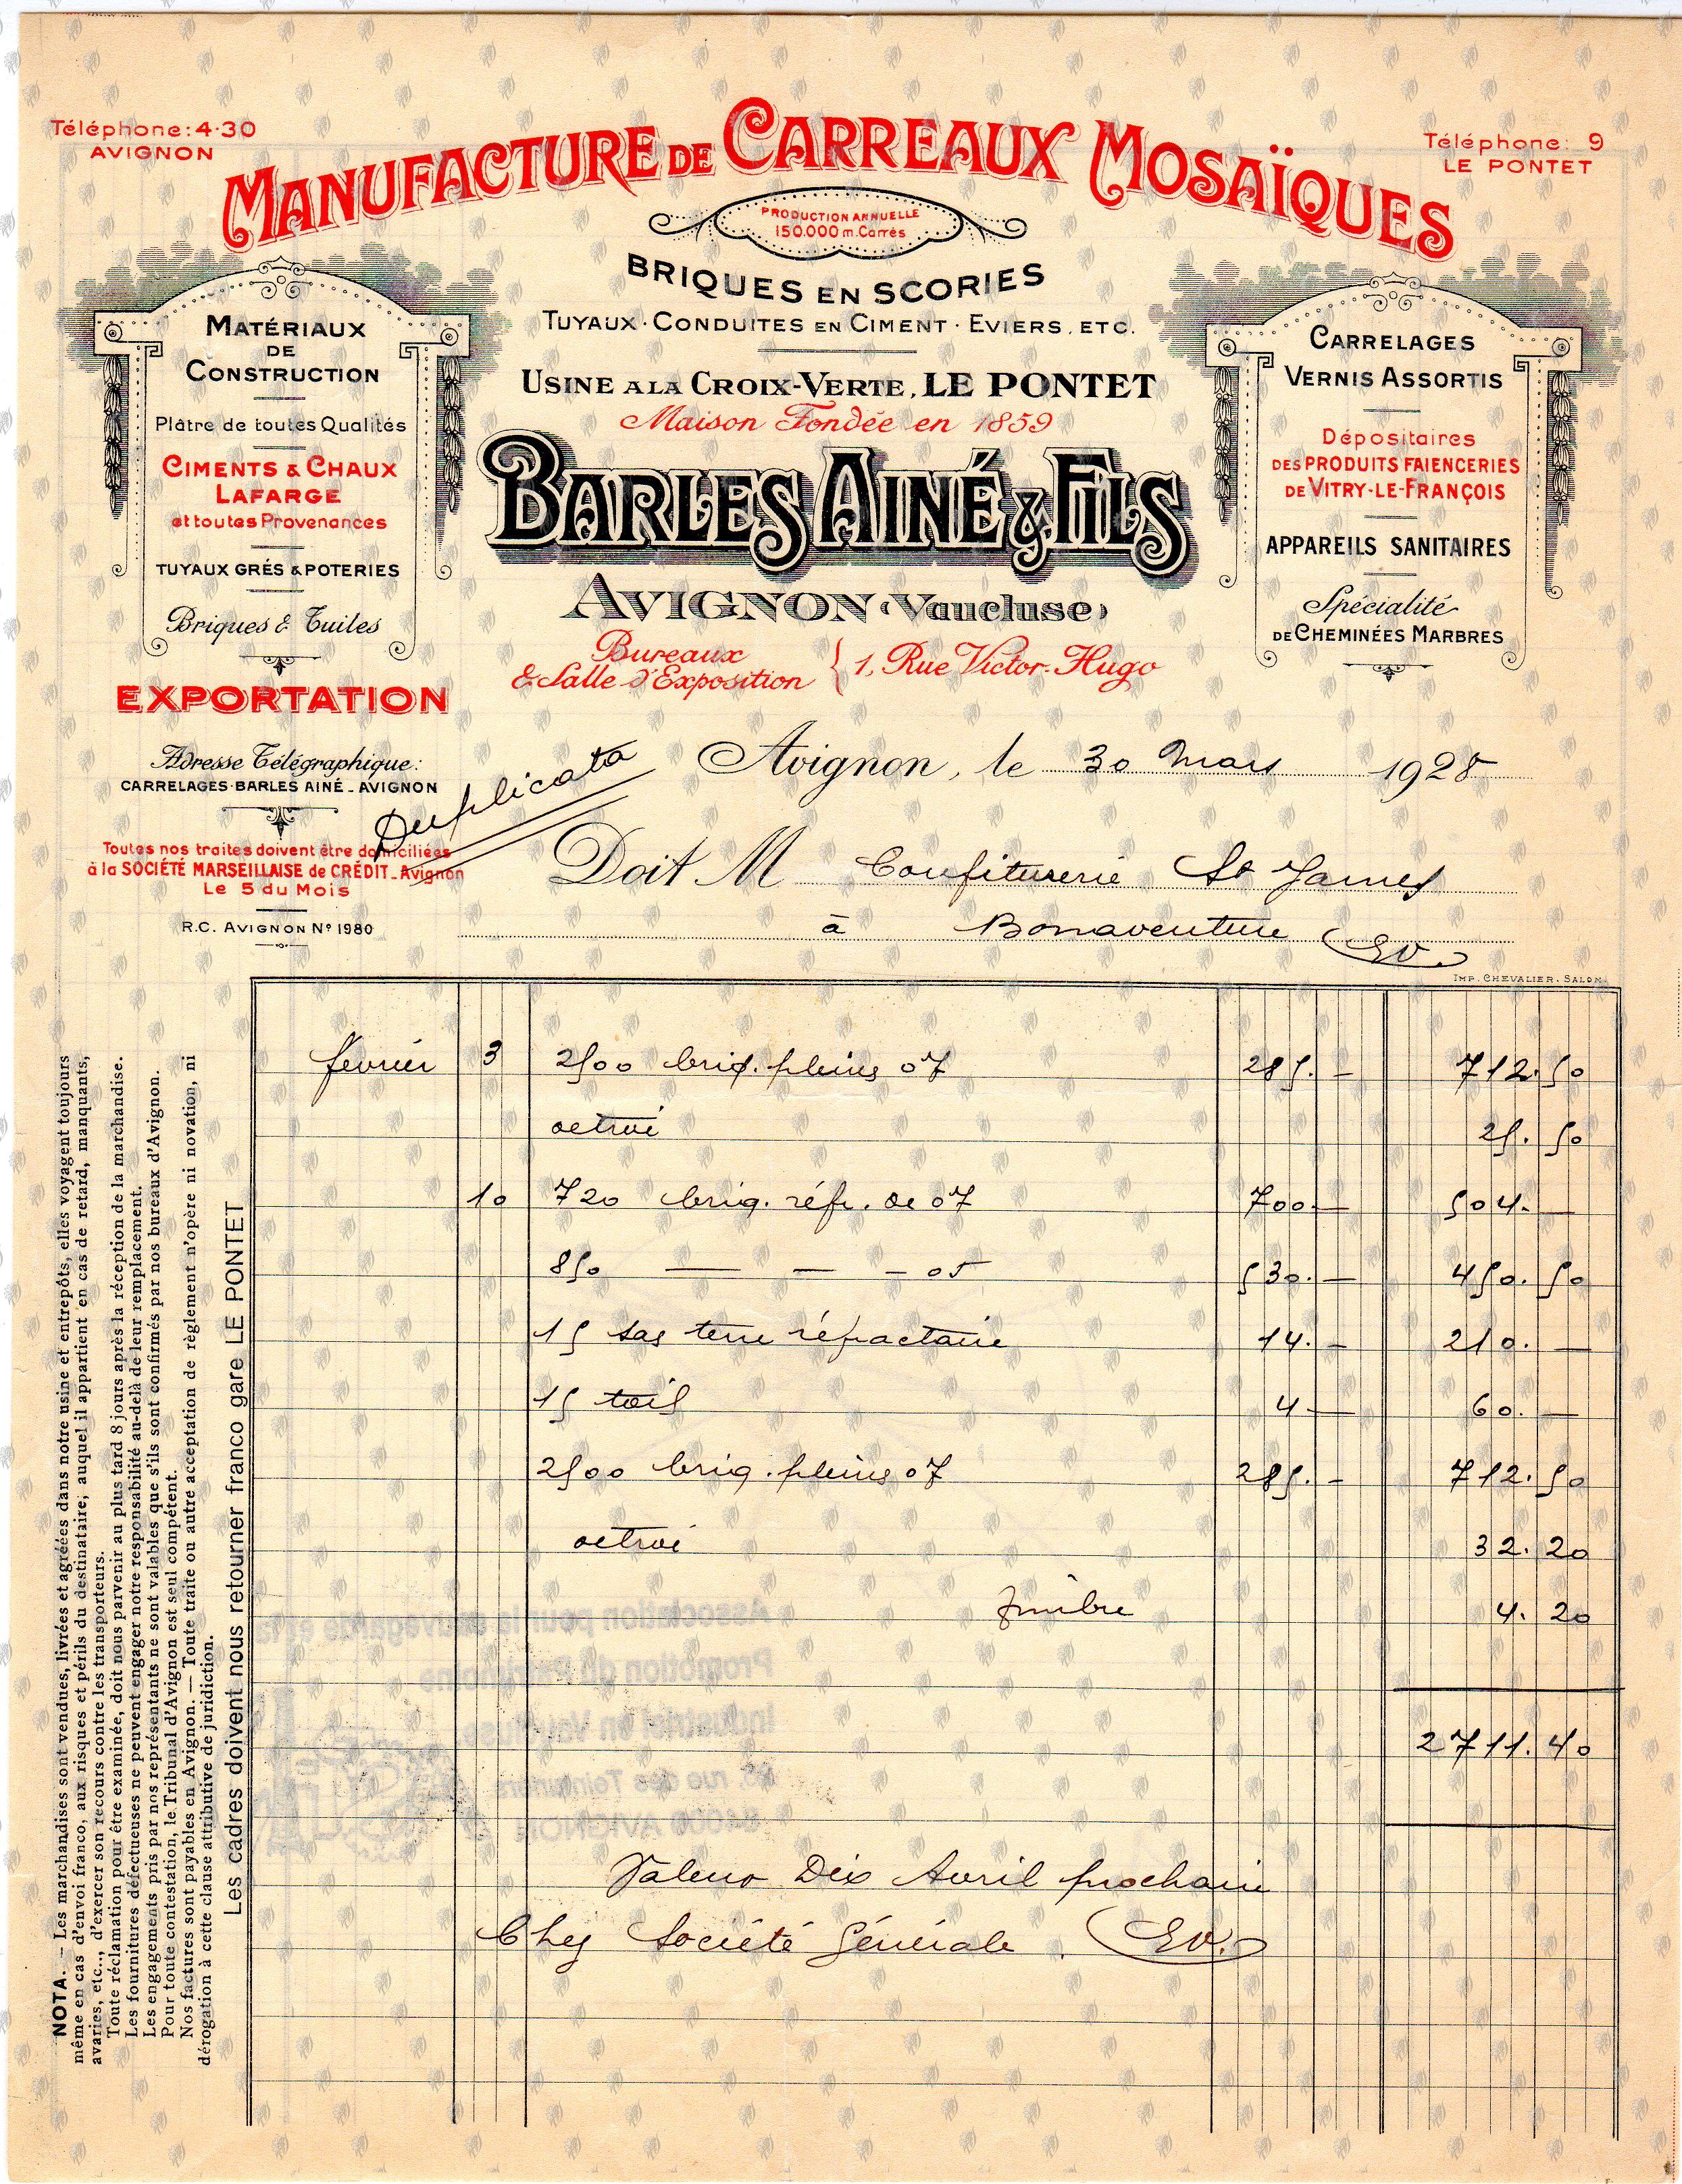 Téléphone: 4·30
AVIGNON
Téléphone: 9
LE PONTET
MANUFACTURE DE CARREAUX MOSAÏQUES
PRODUCTION ANNUELLE
150.000 m. Carrés
BRIQUES EN SCORIES
TUYAUX · CONDUITES EN CIMENT · EVIERS, ETC.
USINE A LA CROIX-VERTE, LE PONTET
Maison Fondée en 1859
BARLES AINÉ & FILS
AVIGNON (Vaucluse)
Bureaux
& Salle d'Exposition { 1, Rue Victor-Hugo
MATÉRIAUX
DE
CONSTRUCTION
Plâtre de toutes Qualités
CIMENTS & CHAUX
LAFARGE
et toutes Provenances
TUYAUX GRÉS & POTERIES
Briques & Tuiles
EXPORTATION
Adresse Télégraphique:
CARRELAGES-BARLES AINÉ_AVIGNON
Toutes nos traites doivent être domiciliées
à la SOCIÉTÉ MARSEILLAISE de CRÉDIT_Avignon
Le 5 du Mois
R.C. AVIGNON Nº 1980
CARRELAGES
VERNIS ASSORTIS
Dépositaires
DES PRODUITS FAIENCERIES
DE VITRY-LE-FRANÇOIS
APPAREILS SANITAIRES
Spécialité
DE CHEMINÉES MARBRES
Duplicata
Avignon, le 30 Mars 1928
Doit M Confiturerie St James
à Bonaventure Ev.
IMP. CHEVALIER. SALON
février 3 2500 briq. pleines 07 285. - 712.50
octroi 25.50
10 720 briq. réfr. de 07 700 — 504. —
850 — — — 05 530. — 450.50
15 sas terre réfractaire 14. - 210. —
15 toil 4 — 60. —
2500 briq. pleines 07 285. - 712.50
octroi 32.20
timbre 4.20
2711.40
Valeur Dix Avril prochain
Chez Société Générale. Ev.
NOTA. — Les marchandises sont vendues, livrées et agréées dans notre usine et entrepôts, elles voyagent toujours
même en cas d'envoi franco, aux risques et périls du destinataire, auquel il appartient en cas de retard, manquants,
avaries, etc.., d'exercer son recours contre les transporteurs.
Toute réclamation pour être examinée, doit nous parvenir au plus tard 8 jours après la réception de la marchandise.
Les fournitures défectueuses ne peuvent engager notre responsabilité au-delà de leur remplacement.
Les engagements pris par nos représentants ne sont valables que s'ils sont confirmés par nos bureaux d'Avignon.
Pour toute contestation, le Tribunal d'Avignon est seul compétent.
Nos factures sont payables en Avignon. — Toute traite ou autre acceptation de règlement n'opère ni novation, ni
dérogation à cette clause attributive de juridiction.
Les cadres doivent nous retourner franco gare LE PONTET
Association pour la sauvegarde et la
Promotion du Patrimoine
Industriel en Vaucluse
rue des Teinturiers
84000 AVIGNON